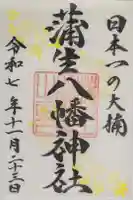 日本一の大楠
蒲生八幡神社
令和七年十一月二十三日